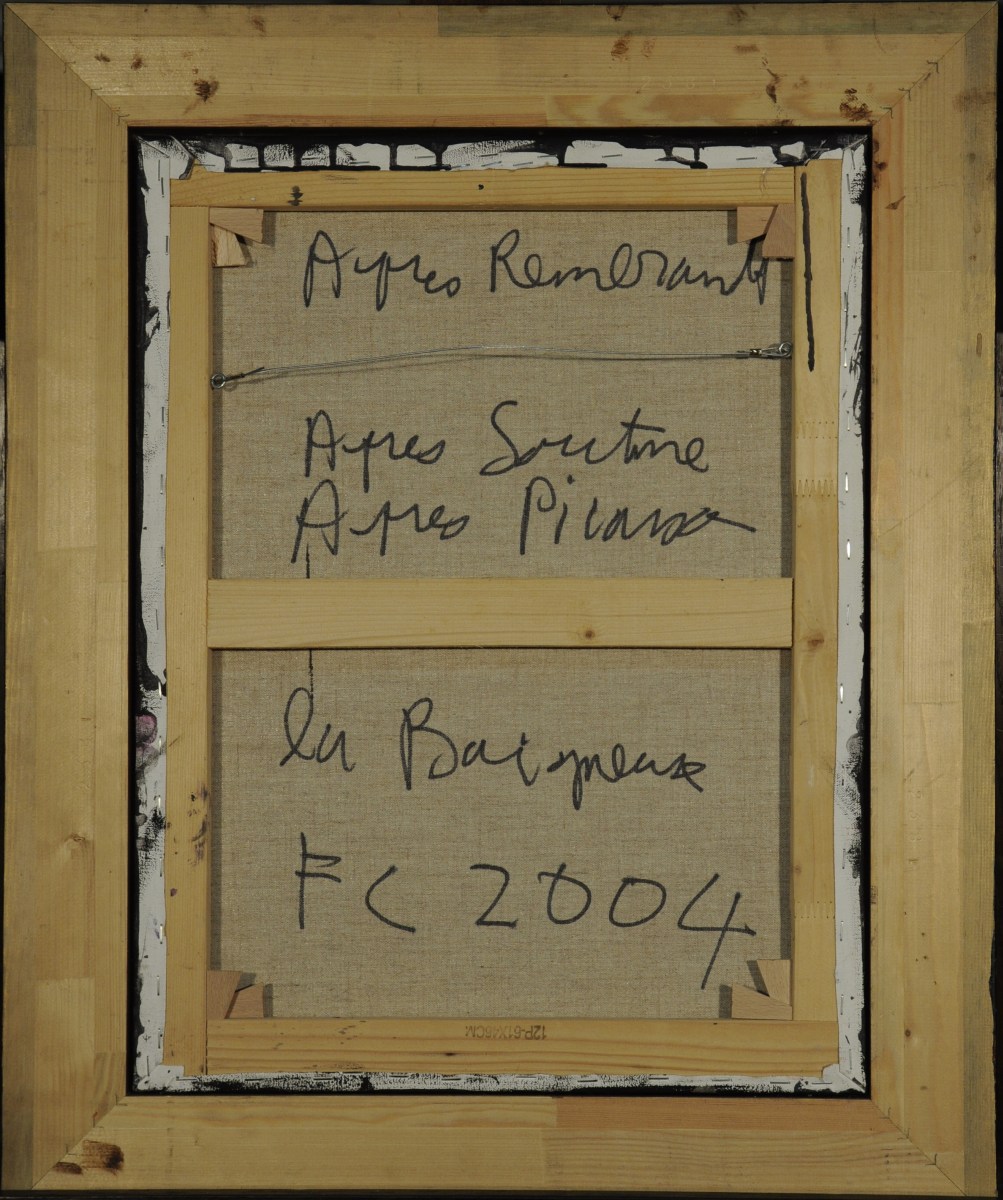 Apres Rembrandt
Apres Soutine
Apres Picasso
la Baigneuse
FC 2004
12P-61X46CM